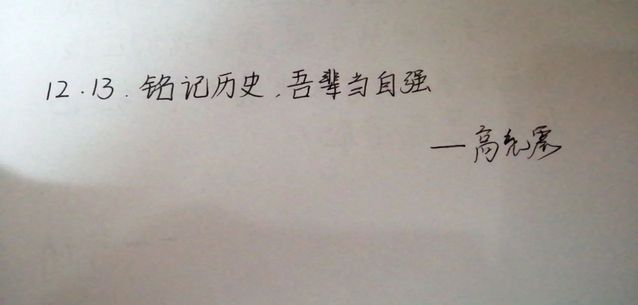 12.13.铭记历史,吾辈当自强
—高